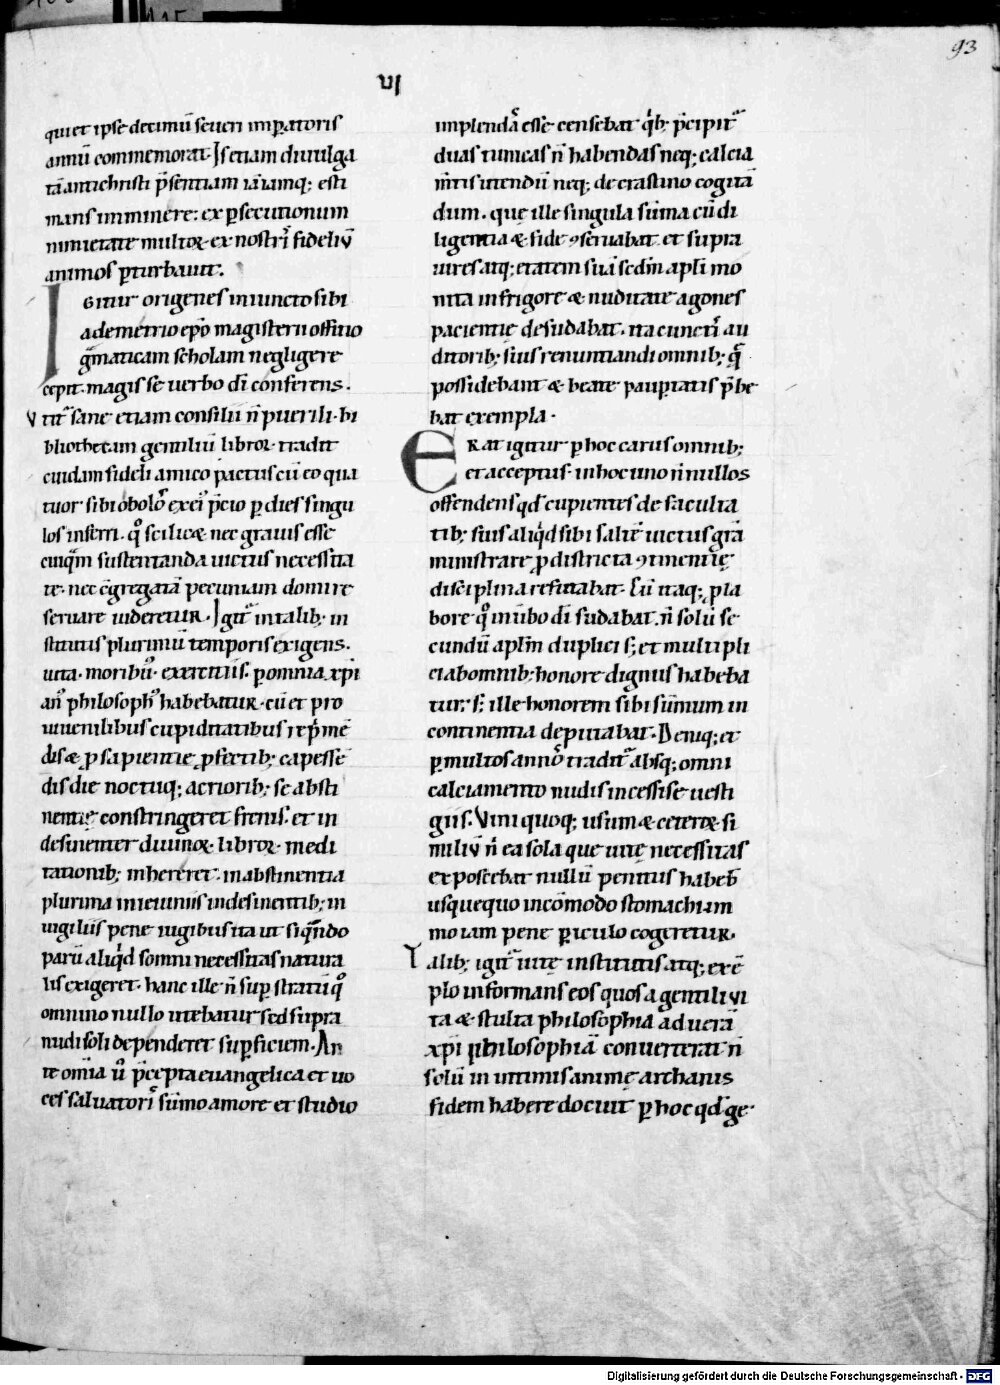 93
VI
qui et ipse decimū seueri imp̄atoris
annū commemorat. Is etiam diuulga
tā antichristi p̄sentiam iā iamq; esti
mans imminere: ex p̱secutionum
nimietate multoꝝ ex nostrĩ fideliũ
animos p̱turbauit.
IGitur origenes iniuncto sibi
a demetrio ep̄o magisterii offitio
g̃maticam scholam negligere
cepit. magis se uerbo dī conferens.
Vtit᷑ sane etiam consiliū n̄ puerili. bi
bliothecam gentiliū libroꝝ tradit
cuidam fideli amico pactus cū eo qua
tuor sibi obolos̄ ex ei᷒ p̄cio p̱ dies singu
los inferri. qͦ scilicæ nec grauis esse
cuiq̄m sustentanda uictus necessita
te. nec c̄gregatā pecuniam domi re
seruare uideretur. Igit᷑ in talib; in
stitutis plurimū temporis exigens.
uita. morib᷒. exercitiis. p̱ omnia xp̄i
an᷒ philosoph᷒ habebatur. cū et pro
iuuenilibus cupiditatibus rep̱mē
disæ ꝓ sapientię ꝓfectib; capessē
dis die noctuq; actiorib; se absti
nentię constringeret frenis. et in
desinenter diuinoꝝ libroꝝ medi
tationib; inhereret. in abstinentia
plurima in ieiuniis indesinentib; in
uigiliis pene iugibus ita ut siqn̄do
parū aliqͥd somni necessitas natura
lis exigeret. hanc ille n̄ sup̱ stratū qͦ
omnino nullo utebatur sed supra
nudi soli dependeret sup̱ficiem. An
te om̄ia ů p̄cepta euangelica et uo
ces saluatorĩ sūmo amore et studio
implendā esse censebat qͥb; p̄cipit᷑
duas tunicas n̄ habendas neq; calcia
m̄tis utendū neq; de crastino cogitā
dum. quę ille singula sūma cū di
ligentia æ fide ꝯseruabat. et supra
uires atq; etatem suā sed̄m apl̄i mo
nita in frigore æ nuditate agones
pacientię desudabat. ita cunctĩ au
ditorib; suis renuntiandi omnib; q̄
possidebant æ beate paup̱tatis p̄be
bat exempla.
ERat igitur p̱ hoc carus omnib;
et acceptus. in hoc uno n̄ nullos
offendens qd̄ cupientes de faculta
tib; suis aliqͥd sibi saltē uictus grā
ministrare ꝓ districta ꝯtinentię
disciplina refutabat. Cū itaq; ꝓ la
bore qͦ in ůbo dī sudabat. n̄ solū se
cundū aplm̄ duplici s; et multipli
ci ab omnib; honore dignus habeba
tur. s; ille honorem sibi sūmum in
continentia deputabat. Deniq; et
p̱ multos annos̄ tradit᷑ absq; omni
calciamento nudis incessise uesti
giis. Vini quoq; usum æ ceteroꝝ si
miliū n̄ ea sola que uitę necessitas
exposcebat nullū penitus habeb̄
usquequo incōmodo stomachi im
mo iam pene p̱iculo cogeretur.
Talib; igit᷑ uitę institutis atq; exē
plo informans eos quos a gentili ui
ta æ stulta philosophia ad uerā
xp̄i philosophiā conuerterat n̄
solū in intimis animę archanis
fidem habere docuit p̱ hoc qd̄ ge
Digitalisierung gefördert durch die Deutsche Forschungsgemeinschaft - DFG